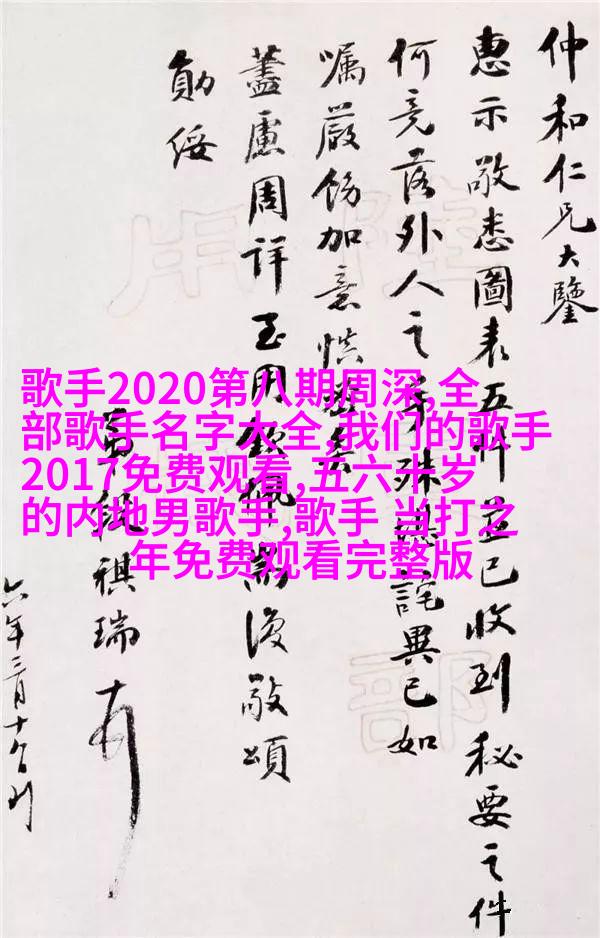 仲和仁兄大鑒
惠示敬悉圖表五件並已收到秘要之件
何竟落外人之手殊堪詫異已如
囑嚴飭加意慎密矣
藎慮周詳至用欽佩耑復敬頌
勛綏
弟段祺瑞
六年三月十日
歌手2020第八期周深,全
部歌手名字大全,我们的歌手
2017免费观看,五六十岁
的内地男歌手,歌手 当打之
年免费观看完整版